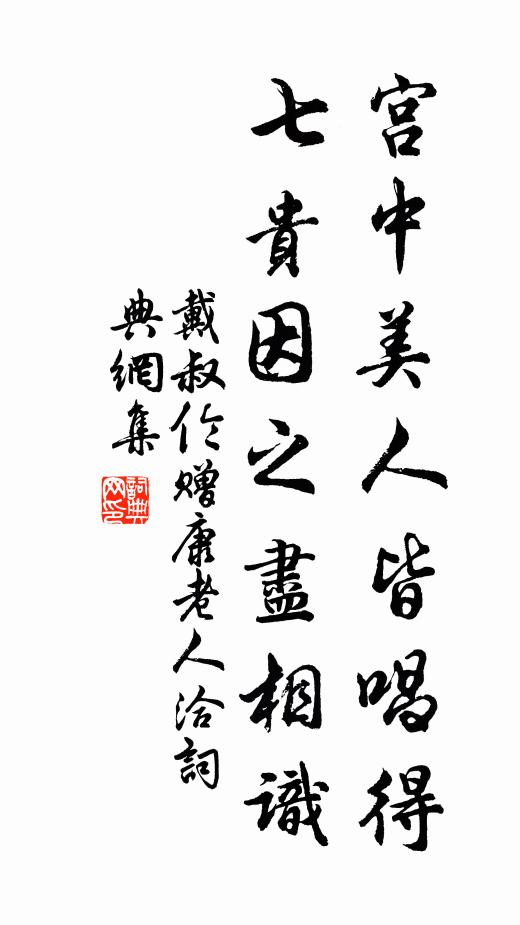 宫中美人皆唱得
七貴因之盡相識
戴叔伦贈康老人洽詞
典網集
詞典網印